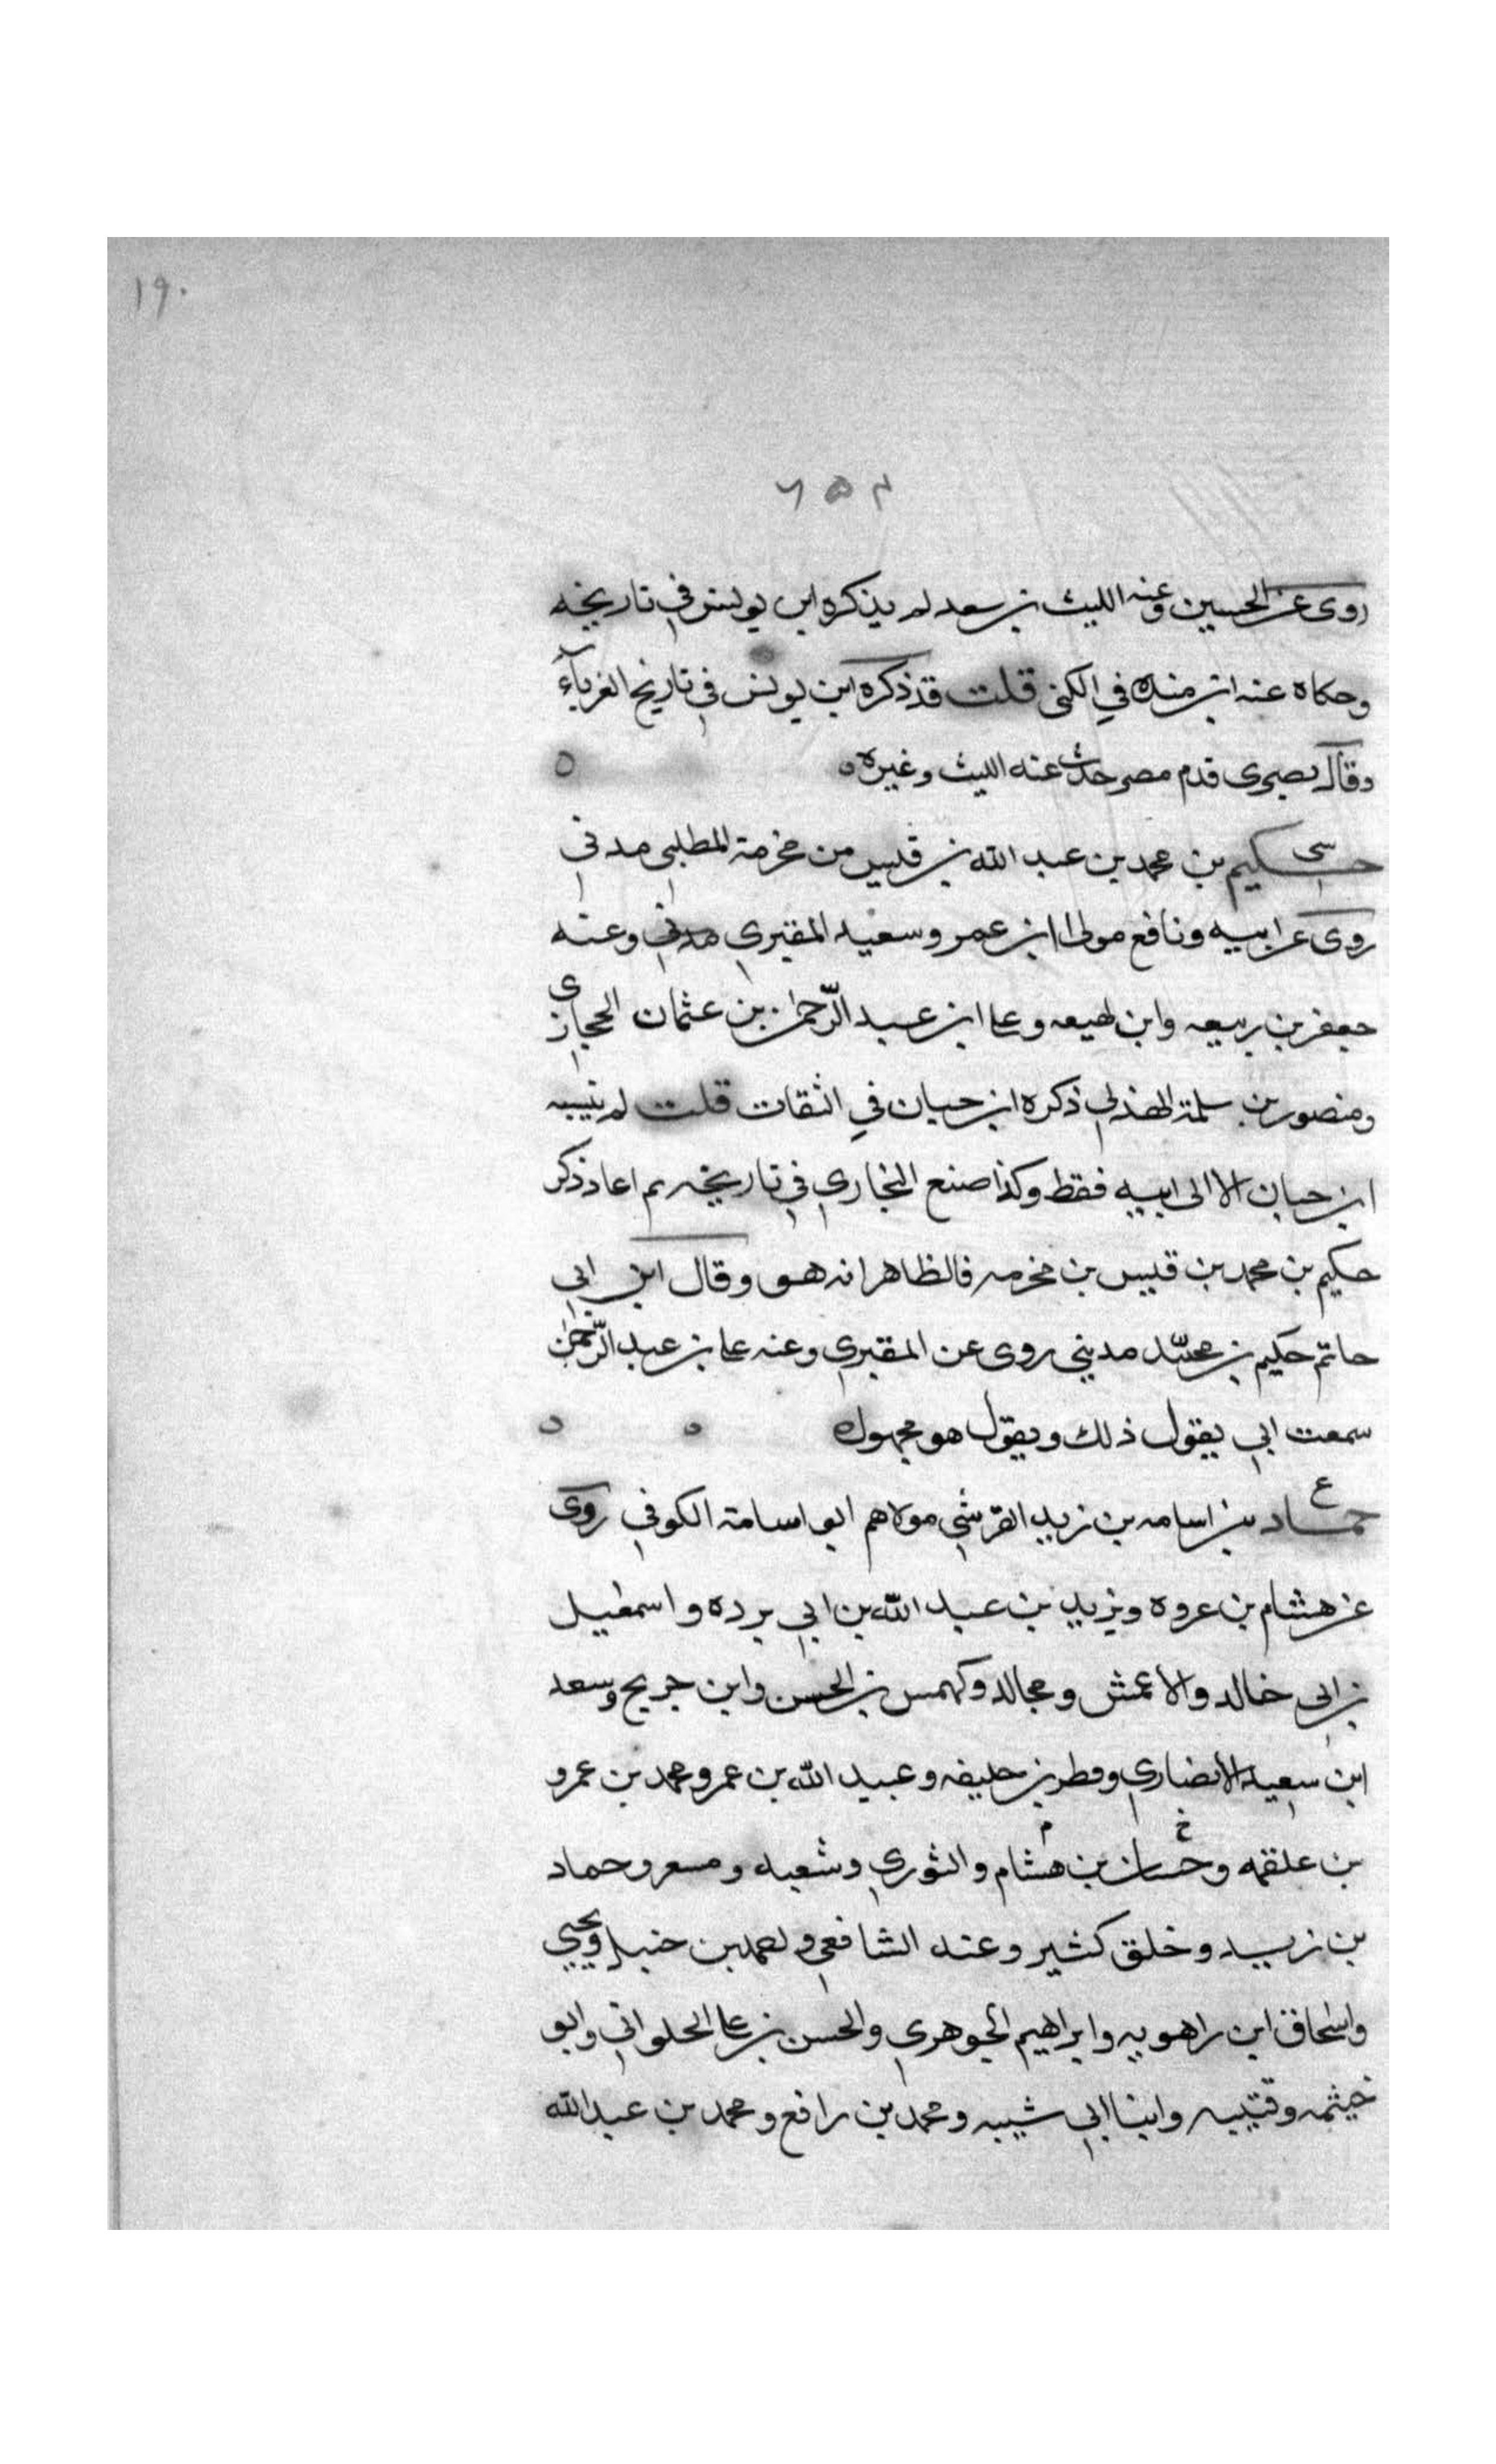 ١٩٠
٢٥٦
روى عن الحسين وعنه الليث بن سعد لم يذكره ابن يونس في تاريخه
وحكاه عنه ابن منده في الكنى قلت قد ذكره ابن يونس في تاريخ الغرباء
وقال بصرى قدم مصر حدث عنه الليث وغيره
سى
حكيم بن محمد بن عبد الله بن قيس من مخرمة المطلبى مدني
روى عن ابيه ونافع مولى ابن عمر وسعيد المقبري مدني وعنه
جعفر بن ربيعه وابن لهيعه وعلى ابن عبد الرّحمن بن عثمان الحجازى
ومنصور بن سلمة الهذلي ذكره ابن حبان في الثقات قلت لم ينسبه
ابن حبان الا الى ابيه فقط وكذا صنع البخاري في تاريخه ثم اعاد ذكر
حكيم بن محمد بن قيس بن مخرمه فالظاهر انه هو وقال ابن ابي
حاتم حكيم بن محمّد مديني روى عن المقبري وعنه على بن عبد الرّحمن
سمعت ابي يقول ذلك ويقول هو مجهول
ع
حماد بن اسامه بن زيد القرشي مولاهم ابو اسامة الكوفي روى
عن هشام بن عروه ويزيد بن عبد الله بن ابي برده واسمعيل
بن ابى خالد والاعمش ومجالد وكهمس بن الحسن وابن جريج وسعد
ابن سعيد الانصاري وفطر بن خليفه وعبيد الله بن عمر ومحمد بن عمرو
بن علقمه وحسان بن هشام والثوري وشعبه ومسعر وحماد
بن زيد وخلق كثير وعنه الشافعي واحمد بن حنبل ويحيي
واسحاق ابن راهويه وابراهيم الجوهري والحسن بن على الحلواني وابو
خيثمه وقتيبه وابنا ابي شيبه ومحمد بن رافع ومحمد بن عبد الله